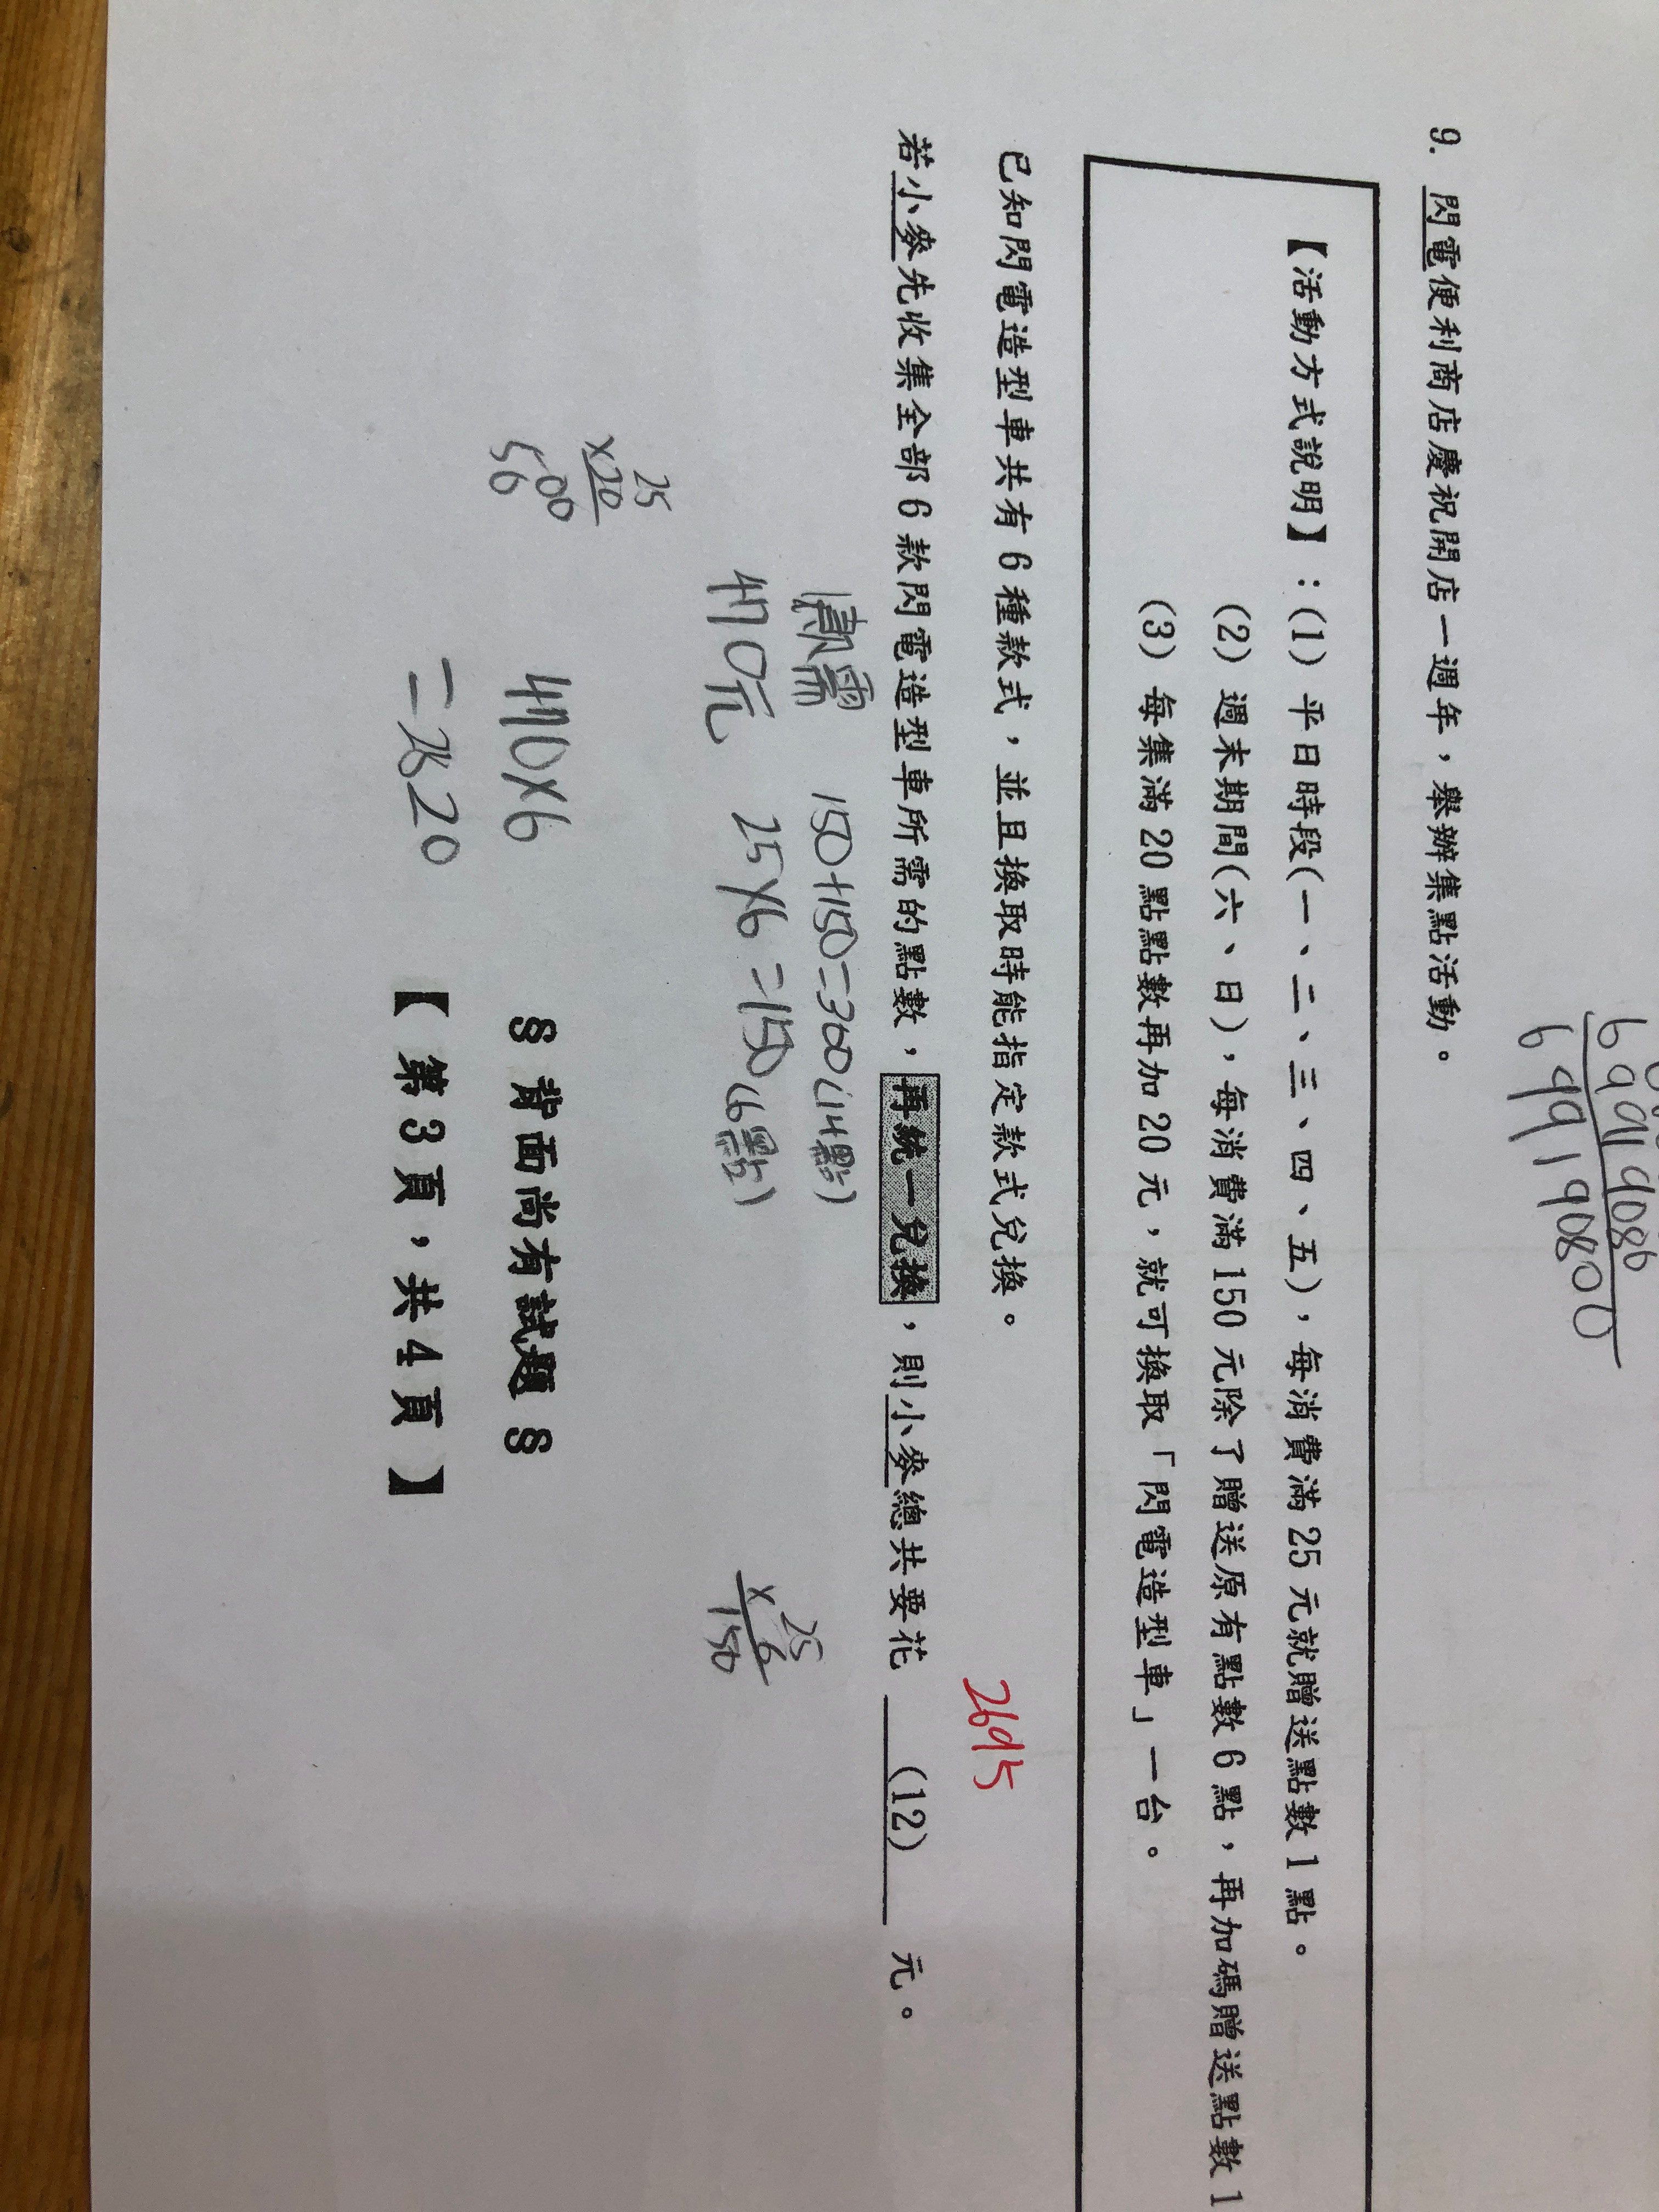 69919086
69919080 0
9. 閃電便利商店慶祝開店一週年，舉辦集點活動。
【活動方式說明】：(1) 平日時段(一、二、三、四、五)，每消費滿 25 元就贈送點數 1 點。
(2) 週末期間(六、日)，每消費滿 150 元除了贈送原有點數 6 點，再加碼贈送點數 1
(3) 每集滿 20 點點數再加 20 元，就可換取「閃電造型車」一台。
已知閃電造型車共有 6 種款式，並且換取時能指定款式兌換。
2695
若小麥先收集全部 6 款閃電造型車所需的點數，再統一兌換，則小麥總共要花 (12) 元。
150+150=300(14點)
470元 25×6=150(6點)
25
×6
150
25
×20
500
50
470×6
=2820
§ 背面尚有試題 §
【 第 3 頁，共 4 頁 】